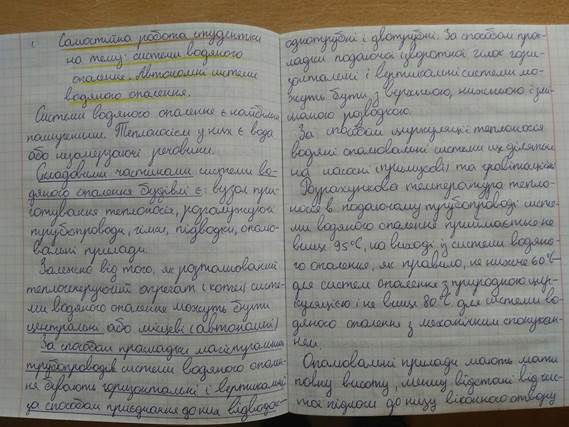 Самостійна робота студентки
на тему: системи водяного
опалення. Автономні системи
водяного опалення.
Системи водяного опалення є найбільш
поширеними. Теплоносієм у них є вода
або незамерзаючі речовини.
Складовими частинами системи во-
дяного опалення будівлі є: вузол при-
готування теплоносія, розгалужуючі
трубопроводи, гілки, підводки, опалю-
вальні прилади.
Залежно від того, як розташований
теплогенеруючий агрегат (котел) систе-
ми водяного опалення можуть бути
центральні або місцеві (автономні)
За способом прокладки магістральних
трубопроводів системи водяного опален-
ня бувають горизонтальні і вертикальні
за способом приєднання до них відводів-
однотрубні і двотрубні. За способом про-
кладки подаючої і зворотної гілок гори-
зонтальні і вертикальні системи мо-
жуть бути з верхньою, нижньою і змі-
шаною розводкою.
За способом циркуляції теплоносія
водяні опалювальні системи поділяться
на насосні (примусові) та гравітаційні
Розрахункова температура тепло-
носія в подаючому трубопроводі систе-
ми водяного опалення приймається не
вище 95°С, на виході із системи водяно-
го опалення, як правило, не нижче 60°-
для систем опалення з природною цир-
куляцією і не вище 80°С для системи во-
дяного опалення з механічним спонукан-
ням.
Опалювальні прилади мають мати
повну висоту, меншу відстані від чис-
тої підлоги до низу віконного отвору